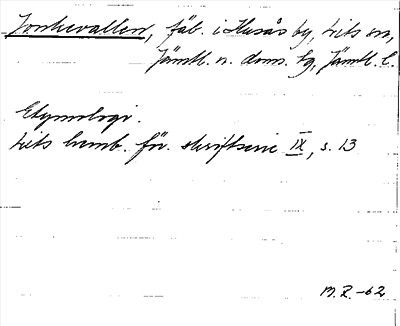 Jonkevallen, fäb. i Husås by, Lits sn,
Jämtl. n. doms. tg, Jämtl. l.
Etymologi.
Lits hemb. för. skriftserie IX, s. 13
M.R. -62